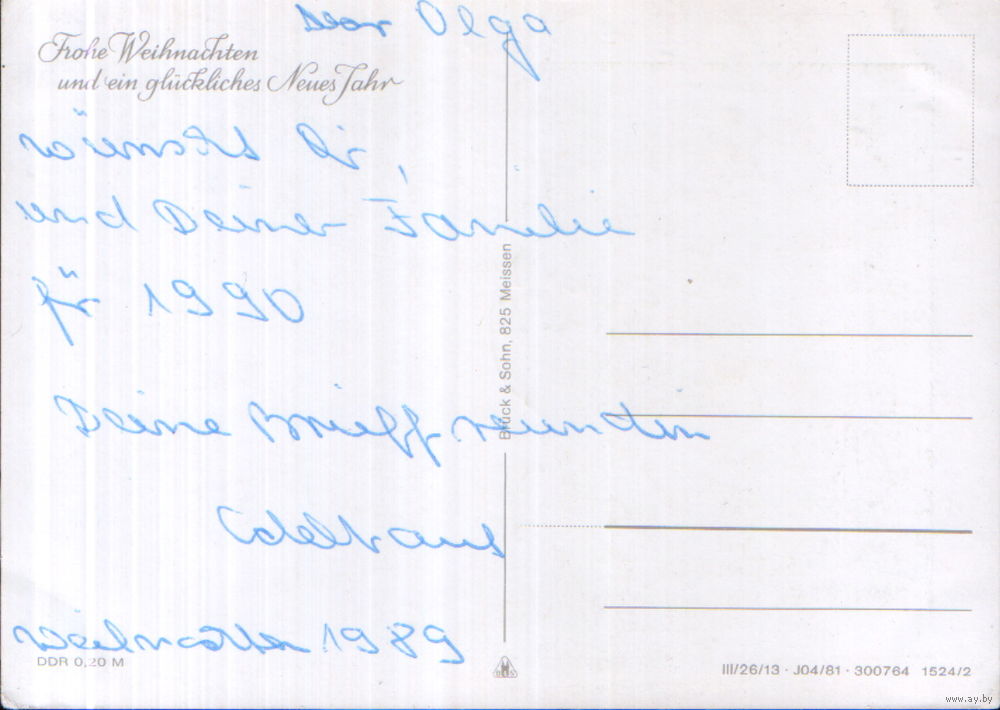 Dear Olga
Frohe Weihnachten
und ein glückliches Neues Jahr
wünscht Dir,
und Deiner Familie
für 1990
Deine Brieffreundin
Weihnachten 1989
DDR 0,20 M
Brück & Sohn, 825 Meissen
III/26/13 · J04/81 · 300764 1524/2
www.ay.by